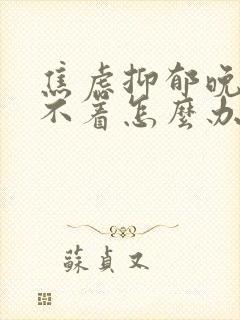 焦虑抑郁晚
不着怎麼办
蘇貞又